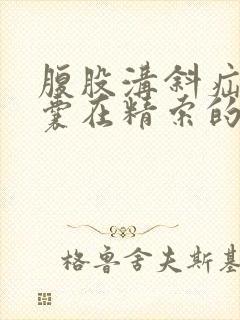 腹股溝斜疝
囊在精索的
格魯舍夫斯基